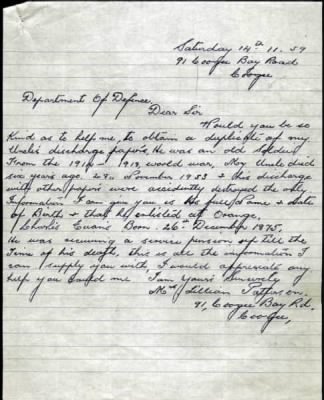 Saturday 14th 11. 59
91 Coogee Bay Road
Coogee
Department Of Defence,
Dear Sir
Would you be so
kind as to help me, to obtain a duplicate of my
Uncle's discharge papers, He was an old Soldier
From the 1914 - 1918, would war, My Uncle died
six years ago. 28th November 1953 & this discharge
with other papers were accidently destroyed the only
Information I can give you is His full Name & date
of Birth & that he enlisted at Orange,
Charles Evans Born 26th December 1875,
He was receiving a service pension up till the
Time of his death, this is all the information I
can supply you with I would appreciate any
help you could me I am Yours Sincerely
Mrs Lillian Patterson
91, Coogee Bay Rd.
Coogee,